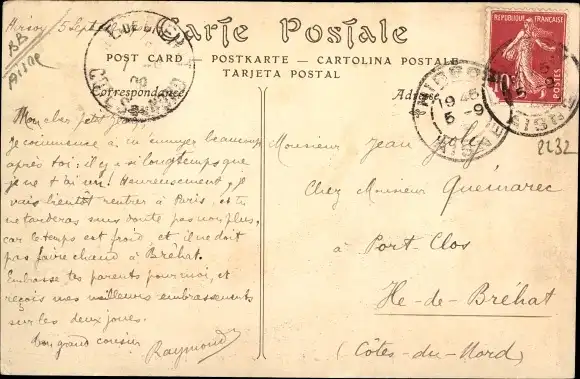 Carte Postale
POST CARD — POSTKARTE — CARTOLINA POSTALE
TARJETA POSTAL
Correspondance
Adresse
REPUBLIQUE FRANÇAISE
10
5 Sept
Mon cher petit Jean,
Je commence à m'ennuyer beaucoup
après toi : il y a si longtemps que
je ne t'ai vu! Heureusement, je
vais bientôt rentrer à Paris, et tu
ne tarderas sans doute pas non plus,
car le temps est froid, et il ne doit
pas faire chaud à Bréhat.
Embrasse tes parents pour moi, et
reçois mes meilleurs embrassements
sur les deux joues.
Ton grand cousin
Raymond
Monsieur Jean
Chez Monsieur Quéinarec
à Port Clos
Ile-de-Bréhat
(Côtes-du-Nord)
19 45
5 -9
2232